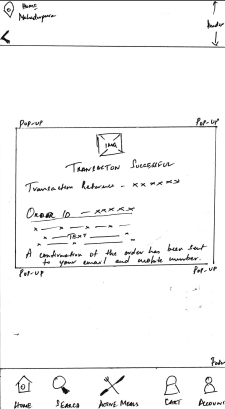 Home
Header
POP-UP POP-UP
IMG
TRANSACTION SUCCESSFUL
Transaction Reference - xxxxxx
ORDER ID - xxxxx
x - - - -
x - TEXT -
x - - - -
A confirmation of the order has been sent
to your email and mobile number.
POP-UP POP-UP
HOME SEARCH ACTIVE MEALS CART ACCOUNT